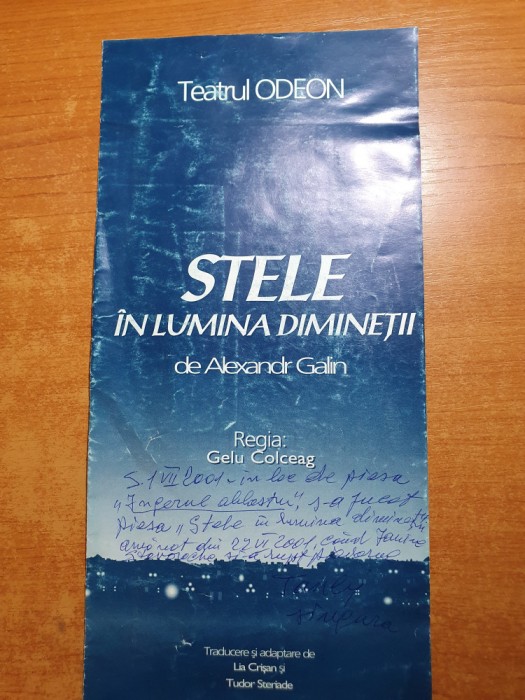 Teatrul ODEON
STELE
ÎN LUMINA DIMINEȚII
de Alexandr Galin
Regia:
Gelu Colceag
S. 1 VII 2001 - în loc de piesa
„Îngerul albastru", s-a jucat
piesa „Stele în lumina dimineții
din 22 VI 2001, când
și-a rupt piciorul
Traducere și adaptare de
Lia Crișan și
Tudor Steriade